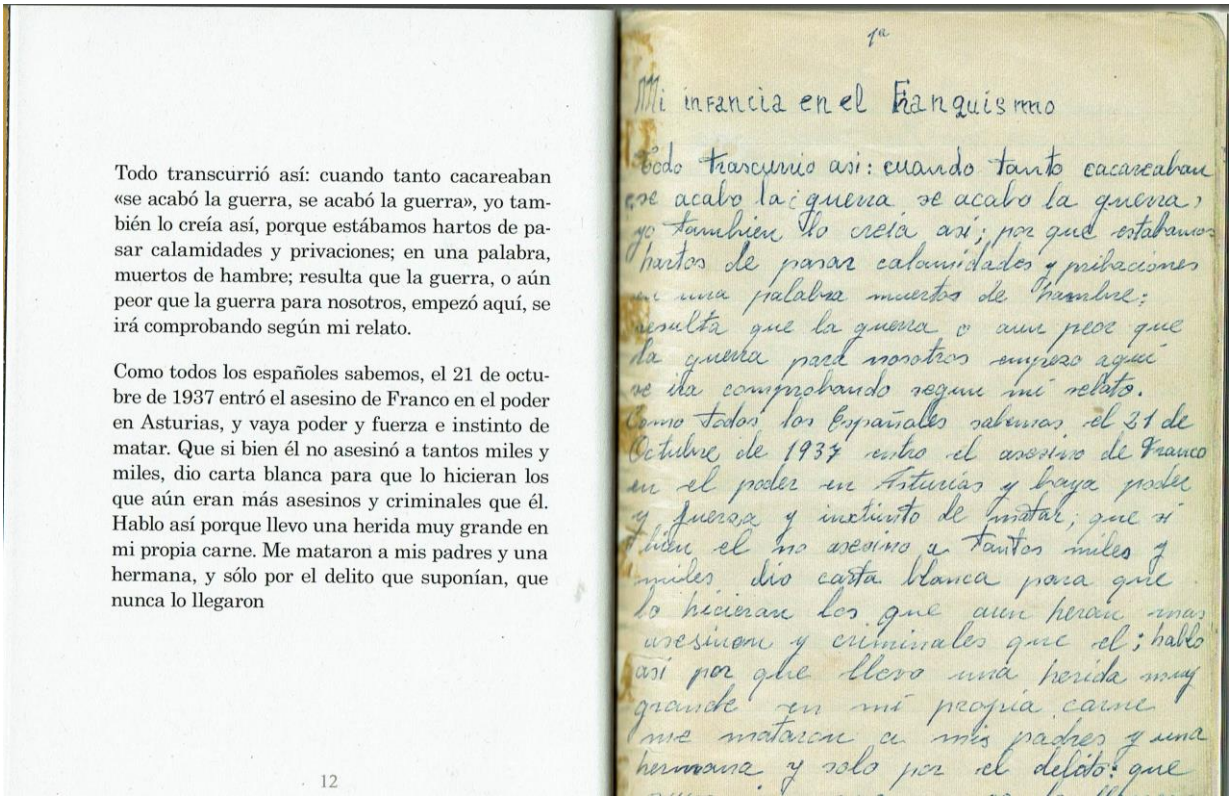 Todo transcurrió así: cuando tanto cacareaban
«se acabó la guerra, se acabó la guerra», yo tam-
bién lo creía así, porque estábamos hartos de pa-
sar calamidades y privaciones; en una palabra,
muertos de hambre; resulta que la guerra, o aún
peor que la guerra para nosotros, empezó aquí, se
irá comprobando según mi relato.
Como todos los españoles sabemos, el 21 de octu-
bre de 1937 entró el asesino de Franco en el poder
en Asturias, y vaya poder y fuerza e instinto de
matar. Que si bien él no asesinó a tantos miles y
miles, dio carta blanca para que lo hicieran los
que aún eran más asesinos y criminales que él.
Hablo así porque llevo una herida muy grande en
mi propia carne. Me mataron a mis padres y una
hermana, y sólo por el delito que suponían, que
nunca lo llegaron
12
1ª
Mi infancia en el Franquismo
Todo trascurrio asi: cuando tanto cacareaban
se acabo la guerra se acabo la guerra,
yo tambien lo creía asi; por que estabamos
hartos de pasar calamidades y pribaciones
en una palabra muertos de hambre;
resulta que la guerra o aun peor que
la guerra para nosotros empezo aquí
se ira comprobando segun mi relato.
Como todos los Españales sabemos, el 21 de
Octubre de 1937 entro el asesino de Franco
en el poder en Asturias y baya poder
y fuerza y instinto de matar; que si
bien el no asesino a tantos miles y
miles dio carta blanca para que
lo hicieran los que aun heran mas
asesinon y criminales que el; hablo
así por que llevo una herida muy
grande en mi propia carne
me mataron a mis padres y una
hermana y solo por el delito: que